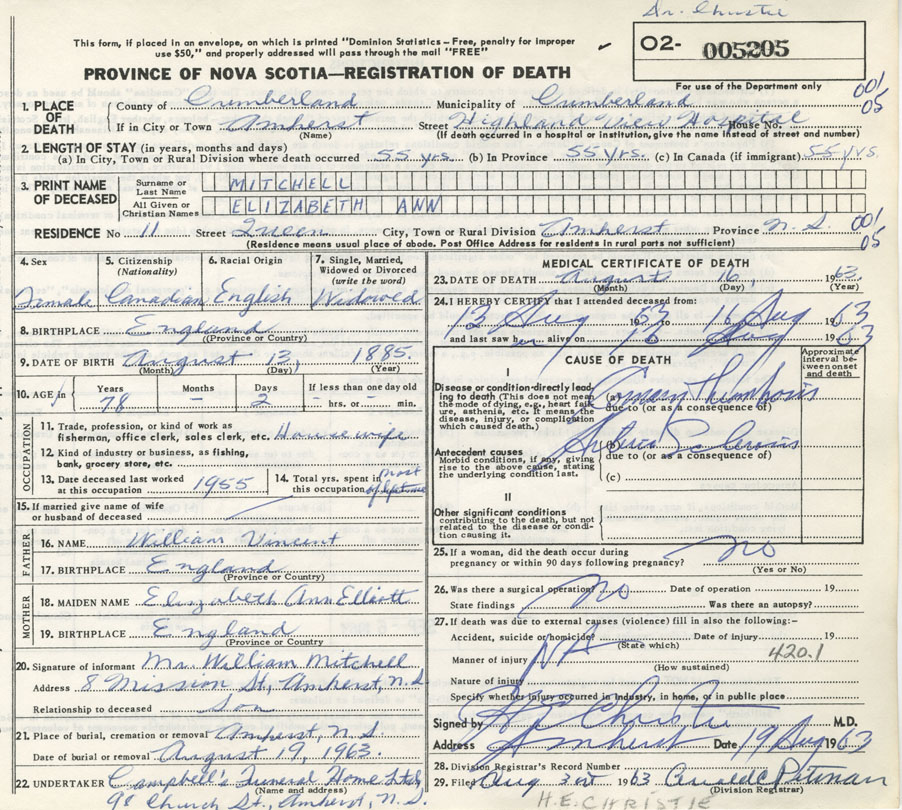 Dr. Christie
This form, if placed in an envelope, on which is printed "Dominion Statistics – Free, penalty for improper
use $50," and properly addressed will pass through the mail "FREE"
O2- 005205
For use of the Department only
PROVINCE OF NOVA SCOTIA—REGISTRATION OF DEATH
001/
05
1. PLACE OF DEATH
County of Cumberland Municipality of Cumberland
If in City or Town Amherst Street Highland View Hospital House No.
(Name) (If death occurred in hospital or institution, give the name instead of street and number)
2. LENGTH OF STAY (in years, months and days)
(a) In City, Town or Rural Division where death occurred 55 yrs. (b) In Province 55 yrs. (c) In Canada (if immigrant) 55 yrs.
3. PRINT NAME OF DECEASED
Surname or Last Name MITCHELL
All Given or Christian Names ELIZABETH ANN
RESIDENCE No 11 Street Queen City, Town or Rural Division Amherst Province N.S. 001/
05
(Residence means usual place of abode. Post Office Address for residents in rural parts not sufficient)
4. Sex
Female
5. Citizenship
(Nationality)
Canadian
6. Racial Origin
English
7. Single, Married,
Widowed or Divorced
(write the word)
Widowed
8. BIRTHPLACE England
(Province or Country)
9. DATE OF BIRTH August 13, 1885.
(Month) (Day) (Year)
10. AGE Years Months Days If less than one day old
78 – 2 – hrs. or – min.
OCCUPATION
11. Trade, profession, or kind of work as
fisherman, office clerk, sales clerk, etc. Housewife
12. Kind of industry or business, as fishing,
bank, grocery store, etc.
13. Date deceased last worked
at this occupation 1955
14. Total yrs. spent in
this occupation most of lifetime
15. If married give name of wife
or husband of deceased
FATHER
16. NAME William Vincent
17. BIRTHPLACE England
(Province or Country)
MOTHER
18. MAIDEN NAME Elizabeth Ann Elliott
19. BIRTHPLACE England
(Province or Country)
20. Signature of informant Mr. William Mitchell
Address 8 Mission St., Amherst, N.S.
Relationship to deceased Son
21. Place of burial, cremation or removal Amherst, N.S.
Date of burial or removal August 19, 1963.
22. UNDERTAKER Campbell's Funeral Home
(Name and address)
98 Church St., Amherst, N.S.
MEDICAL CERTIFICATE OF DEATH
23. DATE OF DEATH August 16, 1963.
(Month) (Day) (Year)
24. I HEREBY CERTIFY that I attended deceased from:
13 Aug 1963 to 16 Aug 1963
and last saw her alive on Aug 1963
CAUSE OF DEATH
Approximate
interval be-
tween onset
and death
I
Disease or condition directly lead-
ing to death (This does not mean
the mode of dying, e.g., heart fail-
ure, asthenia, etc. It means the
disease, injury, or complication
which caused death.)
(a) Coronary Thrombosis
due to (or as a consequence of)
(b) Arterio Sclerosis
due to (or as a consequence of)
Antecedent causes
Morbid conditions, if any, giving
rise to the above cause, stating
the underlying condition last.
(c)
II
Other significant conditions
contributing to the death, but not
related to the disease or condi-
tion causing it.
25. If a woman, did the death occur during
pregnancy or within 90 days following pregnancy? no
(Yes or No)
26. Was there a surgical operation? no Date of operation 19
State findings Was there an autopsy?
27. If death was due to external causes (violence) fill in also the following:–
Accident, suicide or homicide? Date of injury 19
(State which)
NA 420.1
Manner of injury
(How sustained)
Nature of injury
Specify whether injury occurred in industry, in home, or in public place
Signed by H E Christie M.D.
Address Amherst Date 19 Aug 1963
28. Division Registrar's Record Number
29. Filed Aug 1963 Pitman
(Division Registrar)
H.E. CHRISTIE